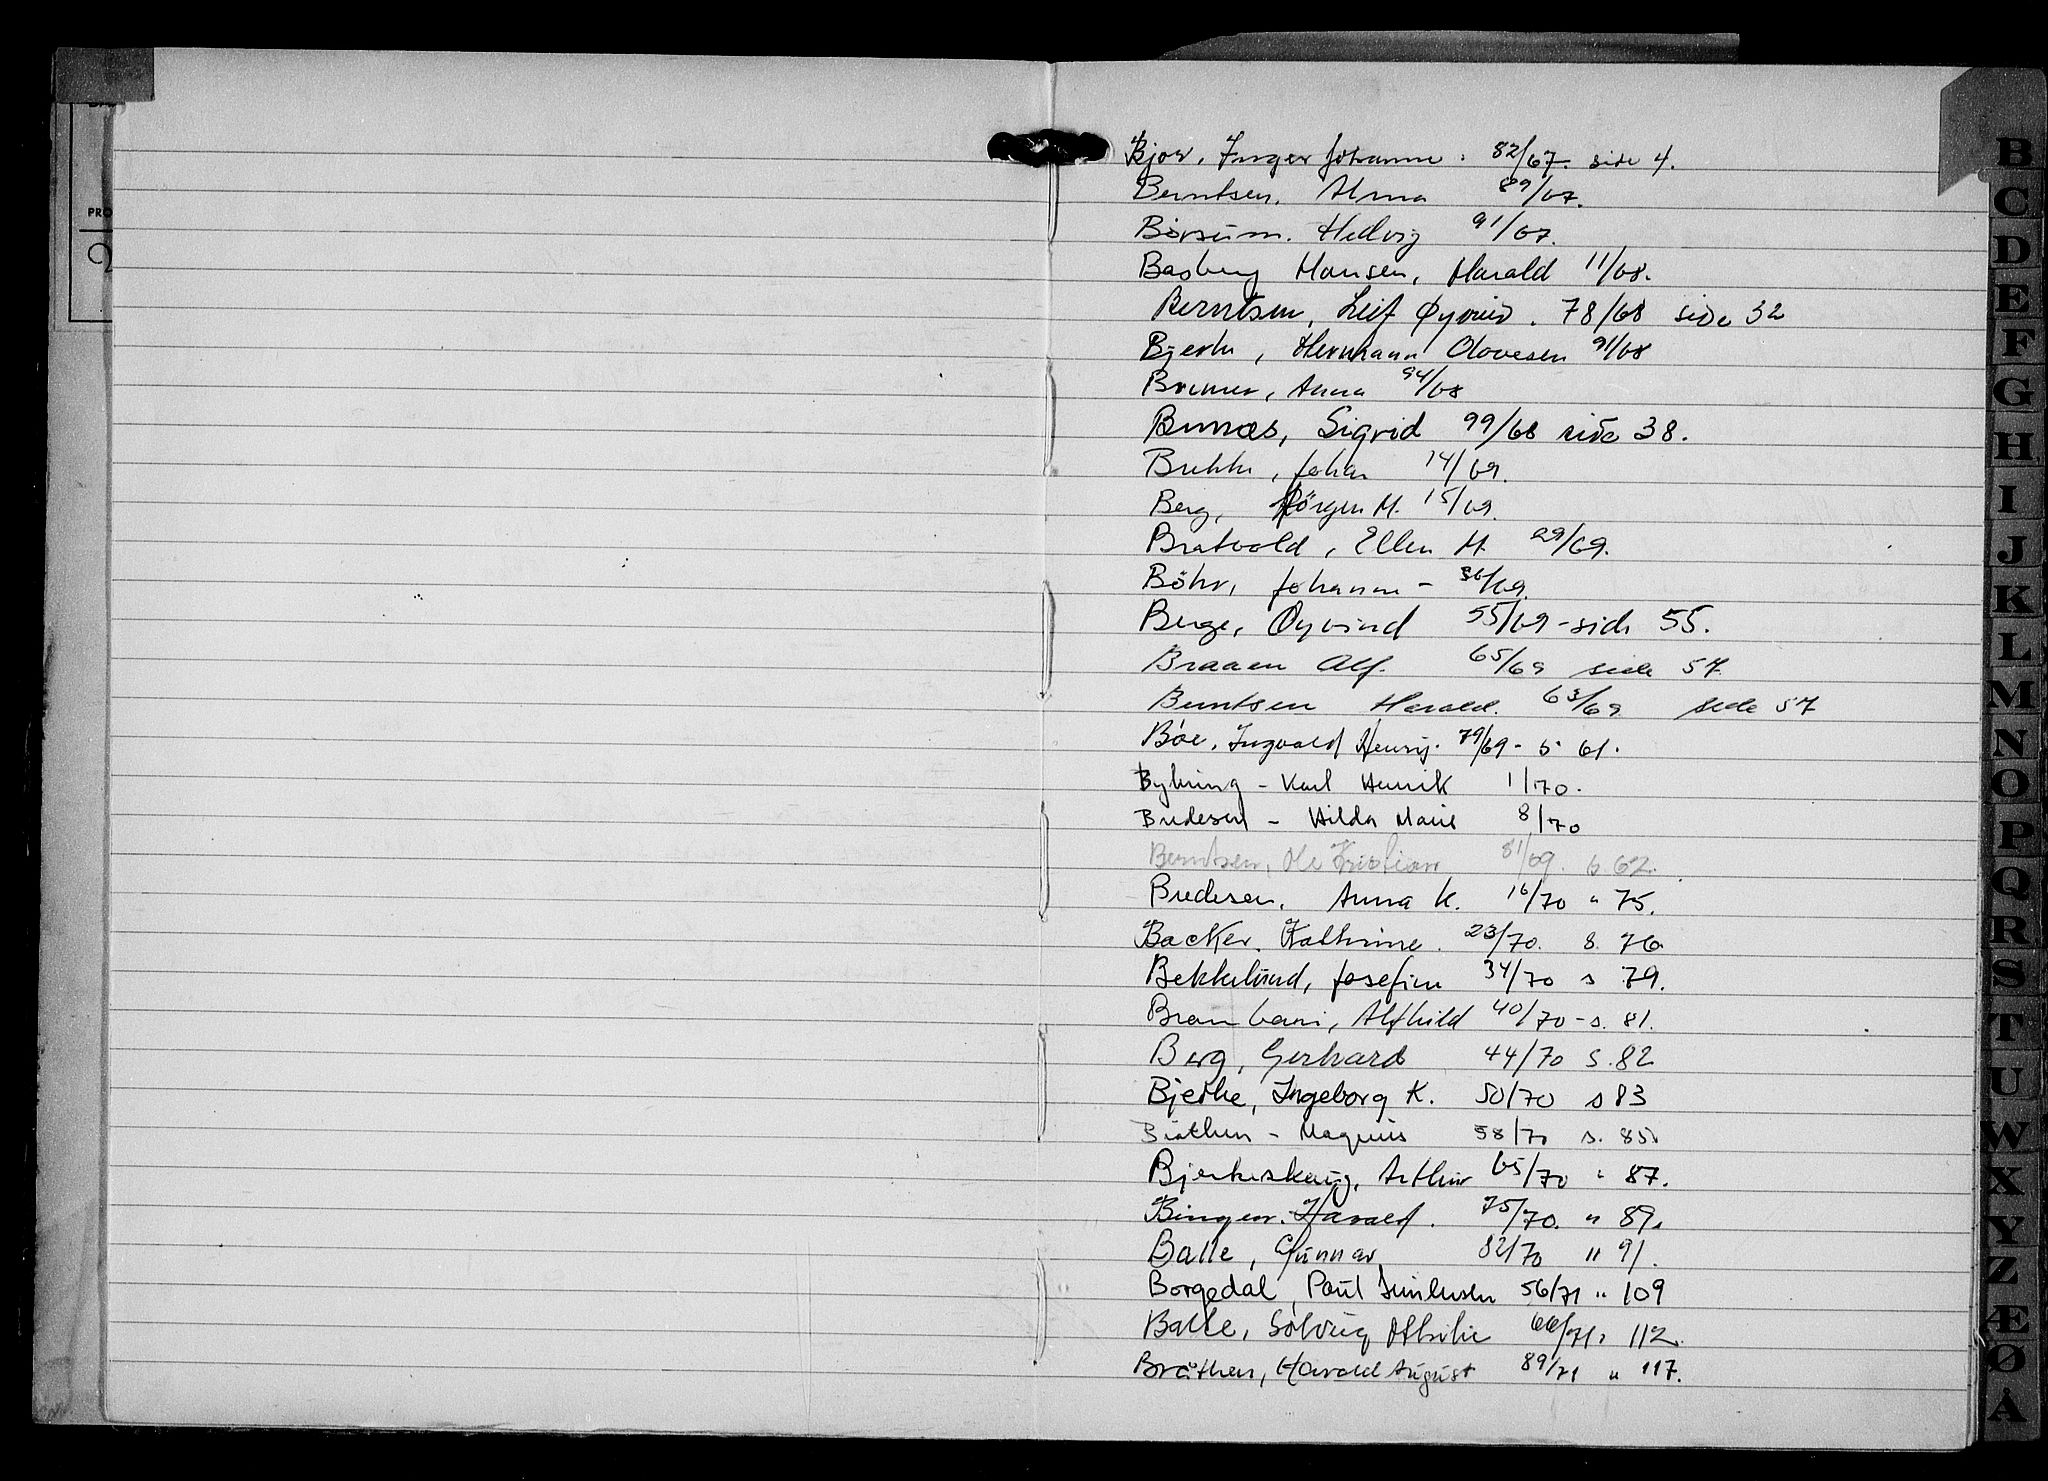 Bjor, Inger Johanne. 82/67. side 4.
Berntsen, Alma 89/67.
Børsum. Hedvig 91/67.
Basberg Hansen, Harald 11/68.
Berntsen, Leif Øyvind. 78/68 side 32
Bjerke, Hermann Olavesen 91/68
Bremer, Anna 94/68
Bunæs, Sigrid 99/68 side 38.
Brekke, Johan 14/69.
Berg, Jörgen M. 15/69.
Bratvold, Ellen M. 29/69.
Böhr, Johanne - 36/69.
Berge, Øyvind 55/69 - side 55.
Braaen Alf. 65/69 side 57
Berntsen Harald. 63/69 side 57
Bøe, Ingvald Henrij. 79/69 - s 61.
Byhring - Karl Henrik 1/70.
Bredesen - Hilda Marie 8/70
Berntsen, Ole Kristian 81/69. s 62.
Bredesen, Anna K. 16/70 " 75.
Backer, Kathrine. 23/70. s. 76
Bekkelund, Josefine 34/70 s 79.
Brambani, Alfhild 40/70 - s. 81.
Berg, Gerhard 44/70 s. 82
Bjerke, Ingeborg K. 50/70 s 83
Bråthen - Magnus 58/70 s. 85
Bjerkeskaug, Arthur 65/70 " 87.
Bingen. Harald. 75/70. " 89.
Balle, Gunnar 82/70 " 91.
Borgedal, Paul 56/71 " 109
Balle, Solveig Othilie 66/71 " 112.
Bråthen, Harald August 89/71 " 117.
PRO
B
C
D
E
F
G
H
I
J
K
L
M
N
O
P
Q
R
S
T
U
W
X
Y
Z
Æ
Ø
Å